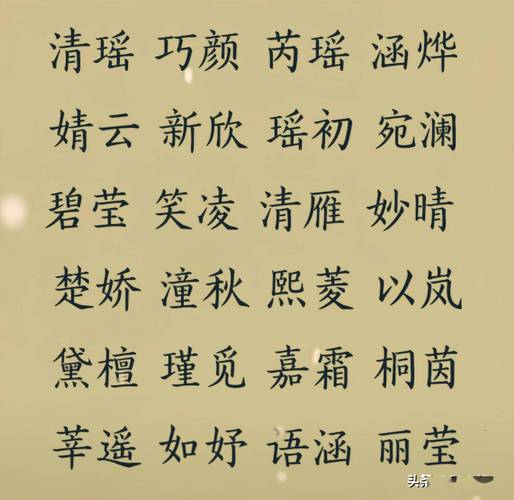 清瑶 巧颜 芮瑶 涵烨
婧云 新欣 瑶初 宛澜
碧莹 笑凌 清雁 妙晴
楚娇 潼秋 熙菱 以岚
黛檀 瑾觅 嘉霜 桐茵
莘遥 如妤 语涵 丽莹
头条